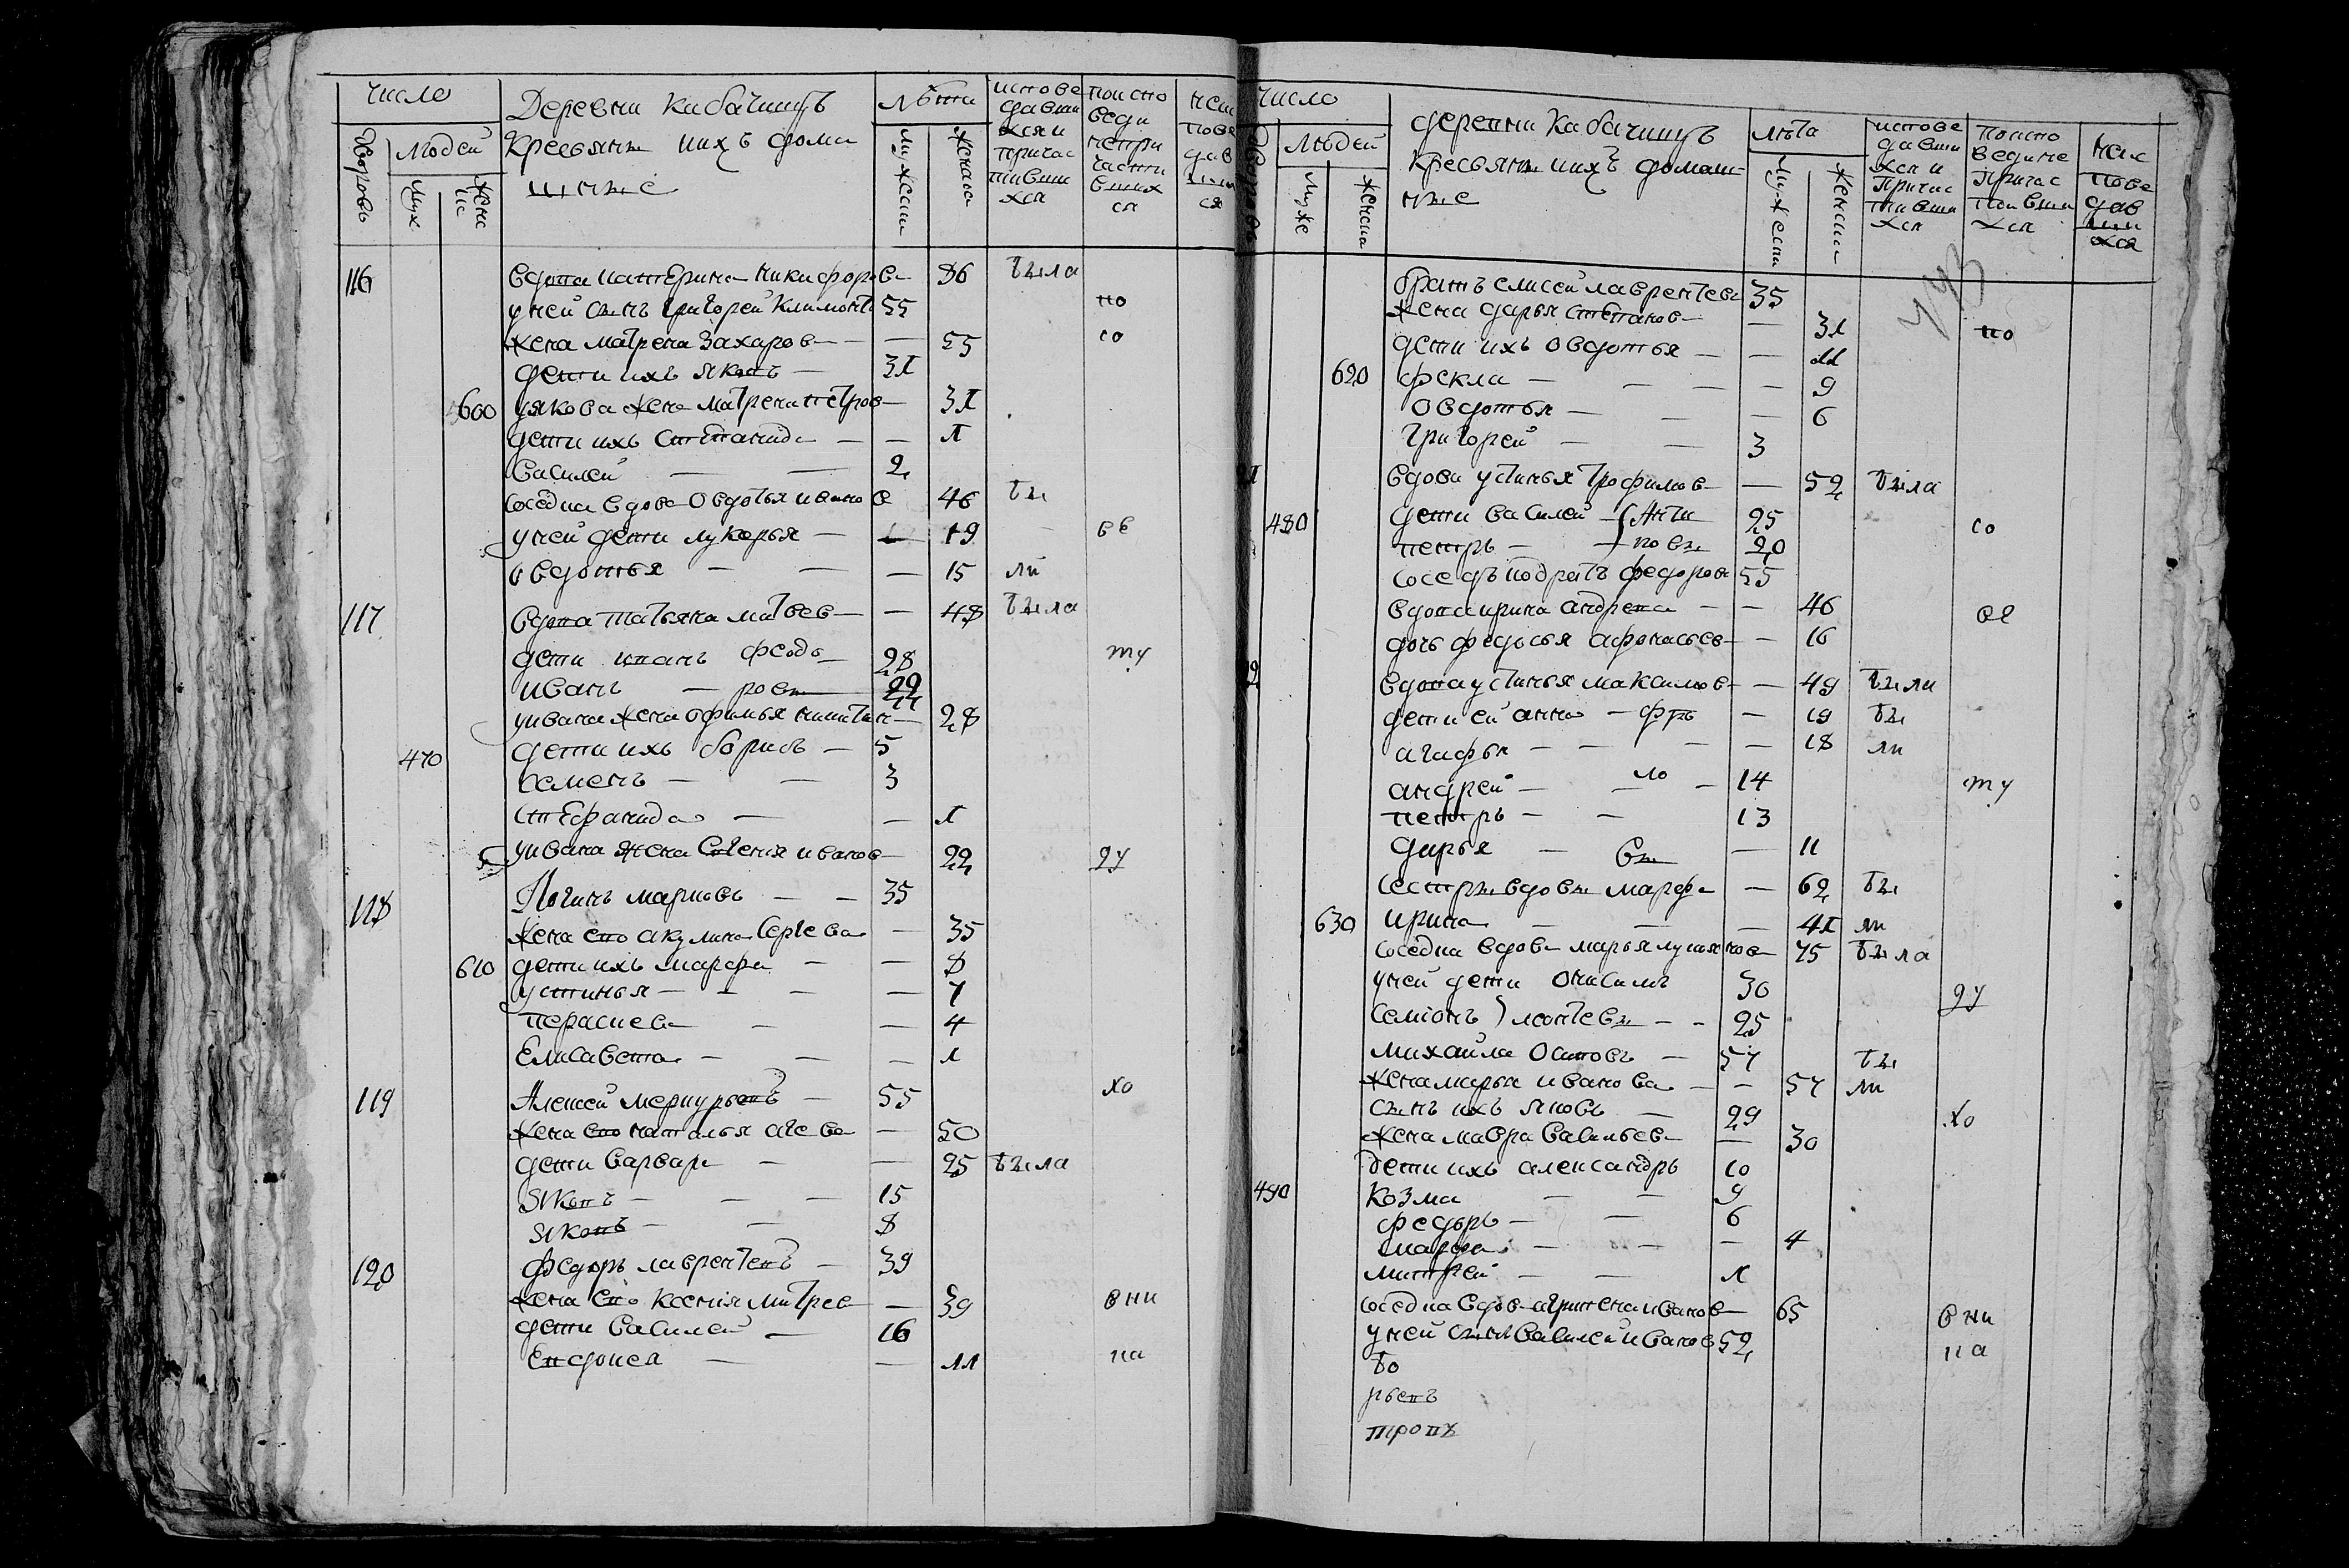 число
Деревни Кибачинцъ
лѣта
исповедавшихся и причастившихся
по исповеди непричастившихся
неисповедавшихся
дворовъ
людей
Крестьяне и ихъ домашние
муж
женс
мужеска
женска
116 вдова катерина никифоров 86 была
у ней сынъ григорей климонт 55 по
жена матрена захаров — — 55 со
дети ихъ яковъ — 31
600 у якова жена матрена петров — 31
дети ихъ степанида — — 1
василей — — 2
соседка вдова овдотья иванов 46 бы
у ней дети лукерья — — 19 ве
овдотья — — — 15 ли
117 вдова татьяна матвев — — 48 была
дети иванъ федо 28 ту
иванъ — ровы 22
у ивана жена офимья никитин — 28
470 дети ихъ борисъ — 5
семенъ — — 3
стефанида — — 1
у ивана жена евгения иванов — 22 ду
118 Логинъ марковъ — — 35
жена ево акулина сергева — 35
610 дети ихъ марфа — — 8
устинья — — — — 7
пераскева — — 4
Елисавета — — — 1
119 Алексей меркурьевъ — 55 хо
жена ево наталья агева — 50
дети варвара — — 25 была
яковъ — — — 15
яковъ — — 8
120 федоръ лаврентевъ — 39
жена ево ксения митрев — 39 вни
дети василей — 16
Евдокея — — 11 ка
число
деревни Кабачинцъ
лѣта
исповедавшихся и причастившихся
по исповеди непричастившихся
неисповедавшихся
дворовъ
людей
Крестьяне и ихъ домашние
муже
женска
мужеска
женска
братъ елисей лаврентевъ 35
жена дарья степанов — — 31 по
дети ихъ овдотья — — 11
620 фекла — — — — 9
овдотья — — — 6
григорей — — 3
вдова устинья трофимов — — 52 была
480 дети василей — Анти 25 со
петръ — — повы 20
соседъ кодратъ федоров 55
вдова ирина андрева — — 46 ве
дочь федосья афонасьев — — 16
вдова устинья максимов — — 49 были
дети ей анна — фи — 19 бы
агафья — — — — 18 ли
андрей — — ло — 14 ту
петръ — — 13
дарья — вы — 11
сестры вдовы марфа — 62 бы
630 ирина — — — 41 ли
соседка вдова марья лукиянов 75 была
у ней дети онисимъ 30 ду
семионъ леонтевы — — 25
михайла осиповъ — 57 бы
жена марья иванова — — 57 ли
сынъ ихъ яковъ — 29 хо
жена мавра васильев — — 30
дети ихъ александръ 10
490 козма — — 9
федоръ — — 6
марфа — — — 4
митрей — — 1
соседка вдов агрипена иванов — 65 вни
у ней сынъ василей иванов 52 ка
бо
рьевъ
тропѣ